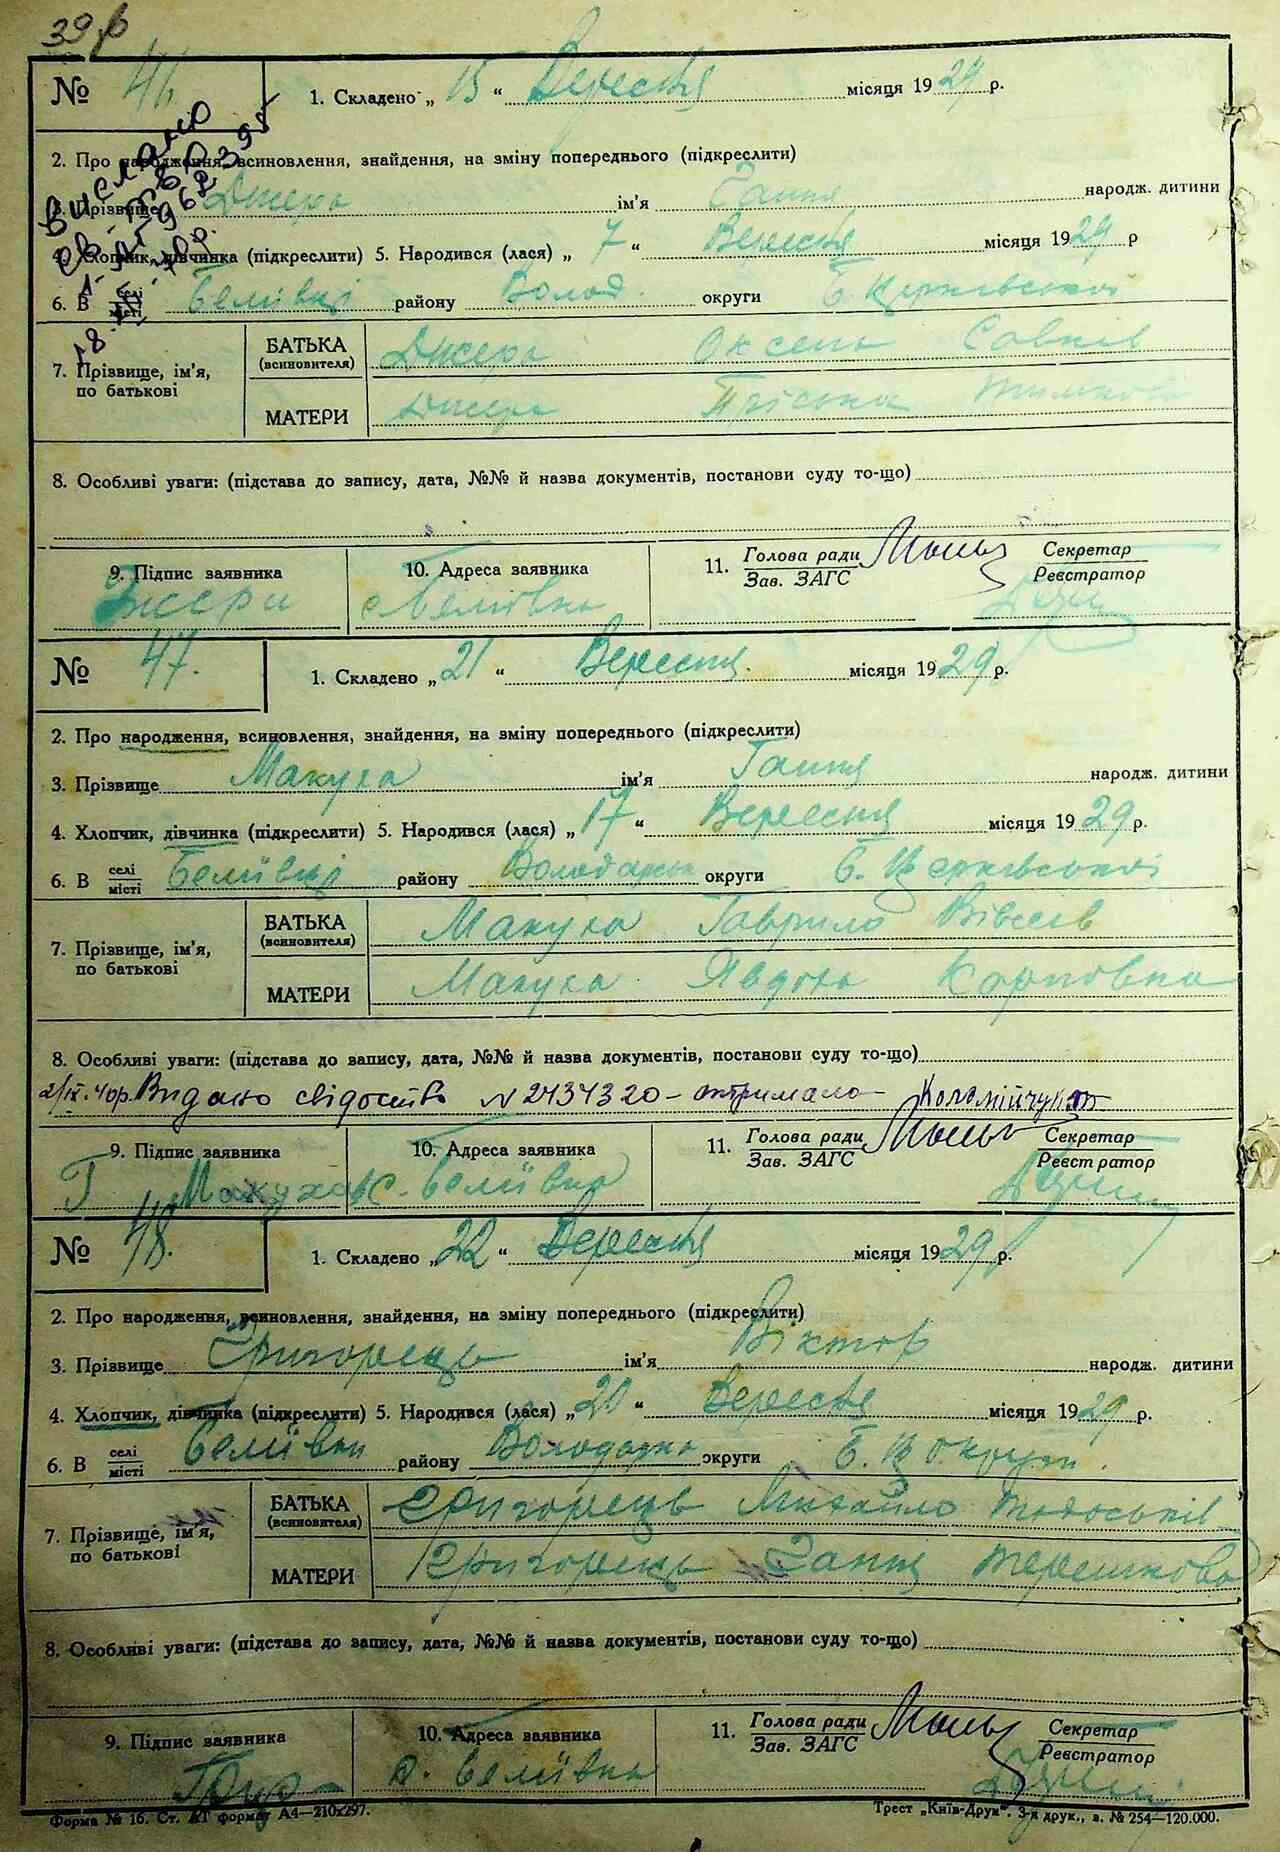 39
№ 46. 1. Складено „ 15 “ Вересня місяця 1929 р.
2. Про народження, всиновлення, знайдення, на зміну попереднього (підкреслити)
3. Прізвище Джера ім'я Ганна народж. дитини
4. Хлопчик, дівчинка (підкреслити) 5. Народився (лася) „ 7 “ Вересня місяця 1929 р
6. В селі місті району Волод. округи Б. Церківської
Вислано
7. Прізвище, ім'я, по батькові
БАТЬКА (всиновителя) Джера Оксень Савків
МАТЕРИ Джера Пріська
8. Особливі уваги: (підстава до запису, дата, №№ й назва документів, постанови суду то-що)
9. Підпис заявника 10. Адреса заявника 11. Голова ради Зав. ЗАГС Секретар Реєстратор
Джери с.
№ 47. 1. Складено „ 21 “ Вересня місяця 1929 р.
2. Про народження, всиновлення, знайдення, на зміну попереднього (підкреслити)
3. Прізвище Макуха ім'я Ганна народж. дитини
4. Хлопчик, дівчинка (підкреслити) 5. Народився (лася) „ 17 “ Вересня місяця 1929 р.
6. В селі місті району Володарка округи Б. Церківської
7. Прізвище, ім'я, по батькові
БАТЬКА (всиновителя) Макуха Гаврило
МАТЕРИ Макуха Явдоха Карповна
8. Особливі уваги: (підстава до запису, дата, №№ й назва документів, постанови суду то-що)
2/IX.40р. Видано свідоцтво N 2434320 - отримала - Коломійчук
9. Підпис заявника 10. Адреса заявника 11. Голова ради Зав. ЗАГС Секретар Реєстратор
Г Макуха с.
№ 48. 1. Складено „ 22 “ Вересня місяця 1929 р.
2. Про народження, всиновлення, знайдення, на зміну попереднього (підкреслити)
3. Прізвище Григорець ім'я Віктор народж. дитини
4. Хлопчик, дівчинка (підкреслити) 5. Народився (лася) „ 20 “ Вересня місяця 1929 р.
6. В селі місті району Володарка округи Б. Ц округи.
7. Прізвище, ім'я, по батькові
БАТЬКА (всиновителя) Григорець Михайло Тодоськів
МАТЕРИ Григорець Ганна Терешкова
8. Особливі уваги: (підстава до запису, дата, №№ й назва документів, постанови суду то-що)
9. Підпис заявника 10. Адреса заявника 11. Голова ради Зав. ЗАГС Секретар Реєстратор
Форма № 16. Ст. АТ формат А4—210x297. Трест „Київ-Друк“. 3-я друк., в. № 254—120.000.